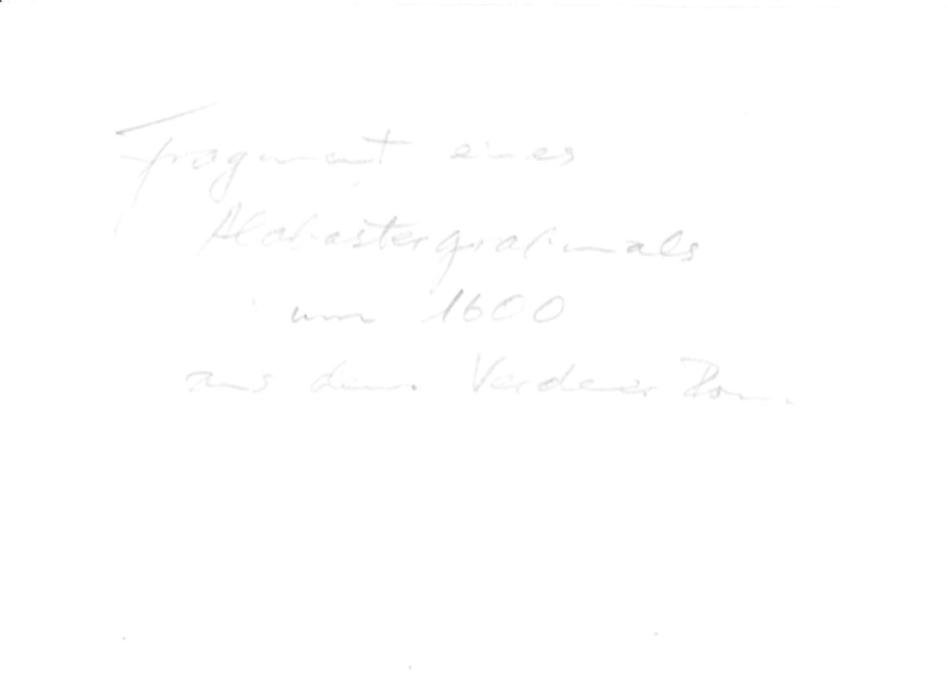 Fragment eines
Alabastergrabmals
um 1600
aus dem Verdener Dom.